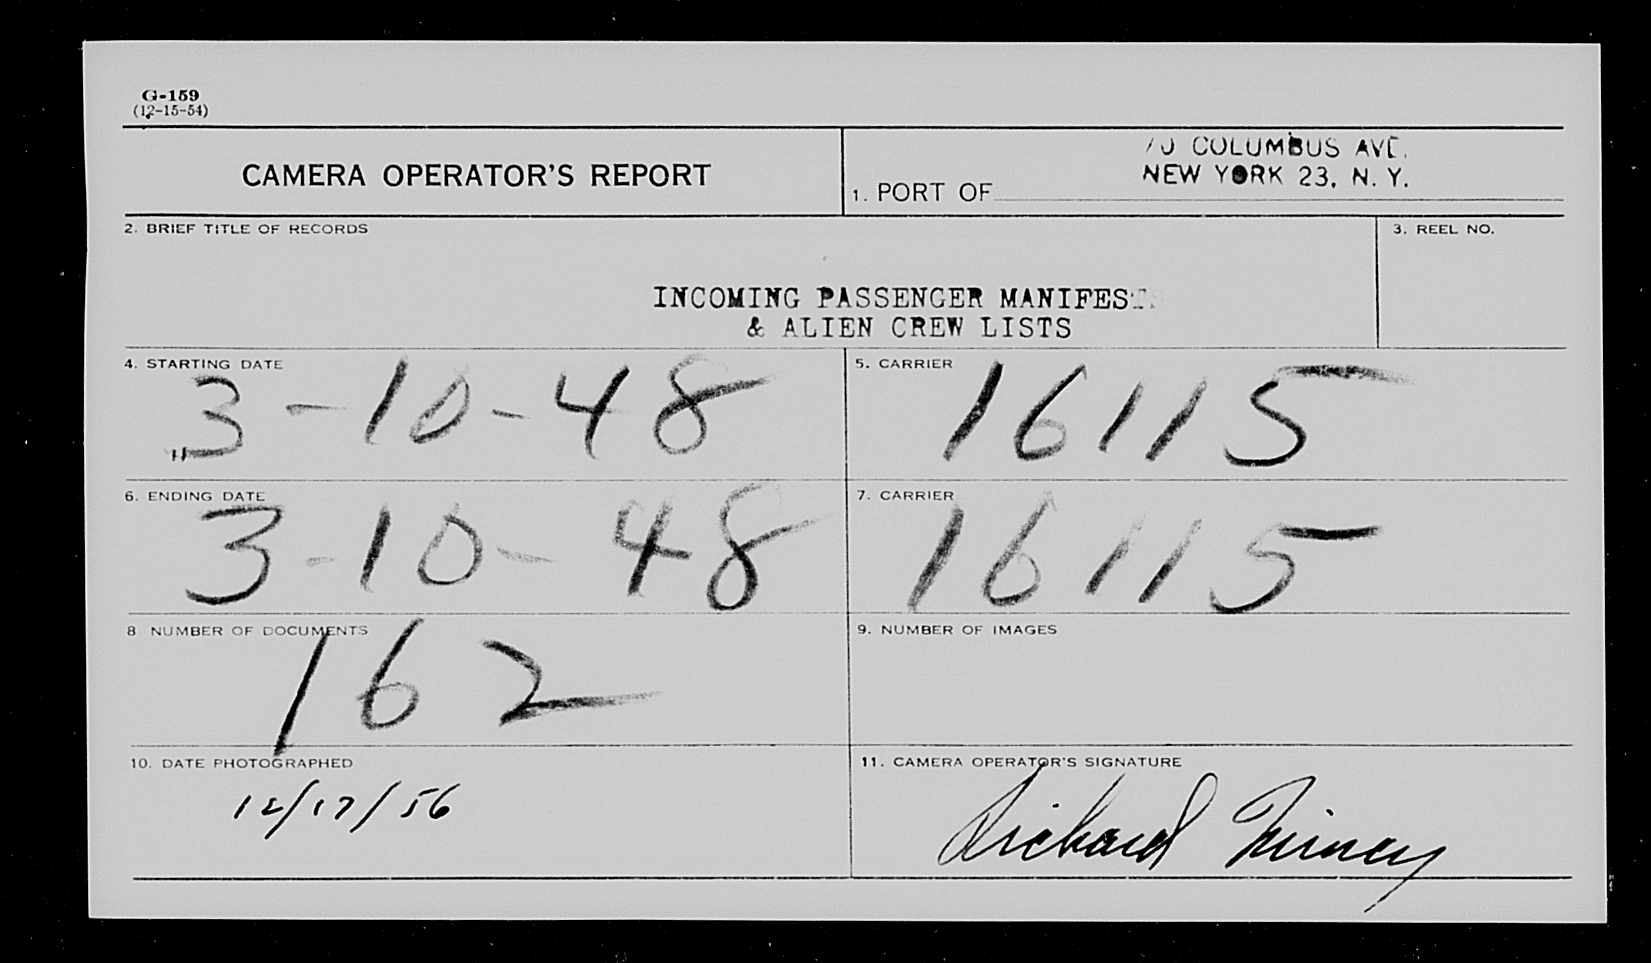 G-159
(12-15-54)
CAMERA OPERATOR'S REPORT
70 COLUMBUS AVE.
NEW YORK 23, N. Y.
1. PORT OF
2. BRIEF TITLE OF RECORDS
3. REEL NO.
INCOMING PASSENGER MANIFESTS
& ALIEN CREW LISTS
4. STARTING DATE
3-10-48
5. CARRIER
16115
6. ENDING DATE
3-10-48
7. CARRIER
16115
8 NUMBER OF DOCUMENTS
162
9. NUMBER OF IMAGES
10. DATE PHOTOGRAPHED
12/17/56
11. CAMERA OPERATOR'S SIGNATURE
Richard